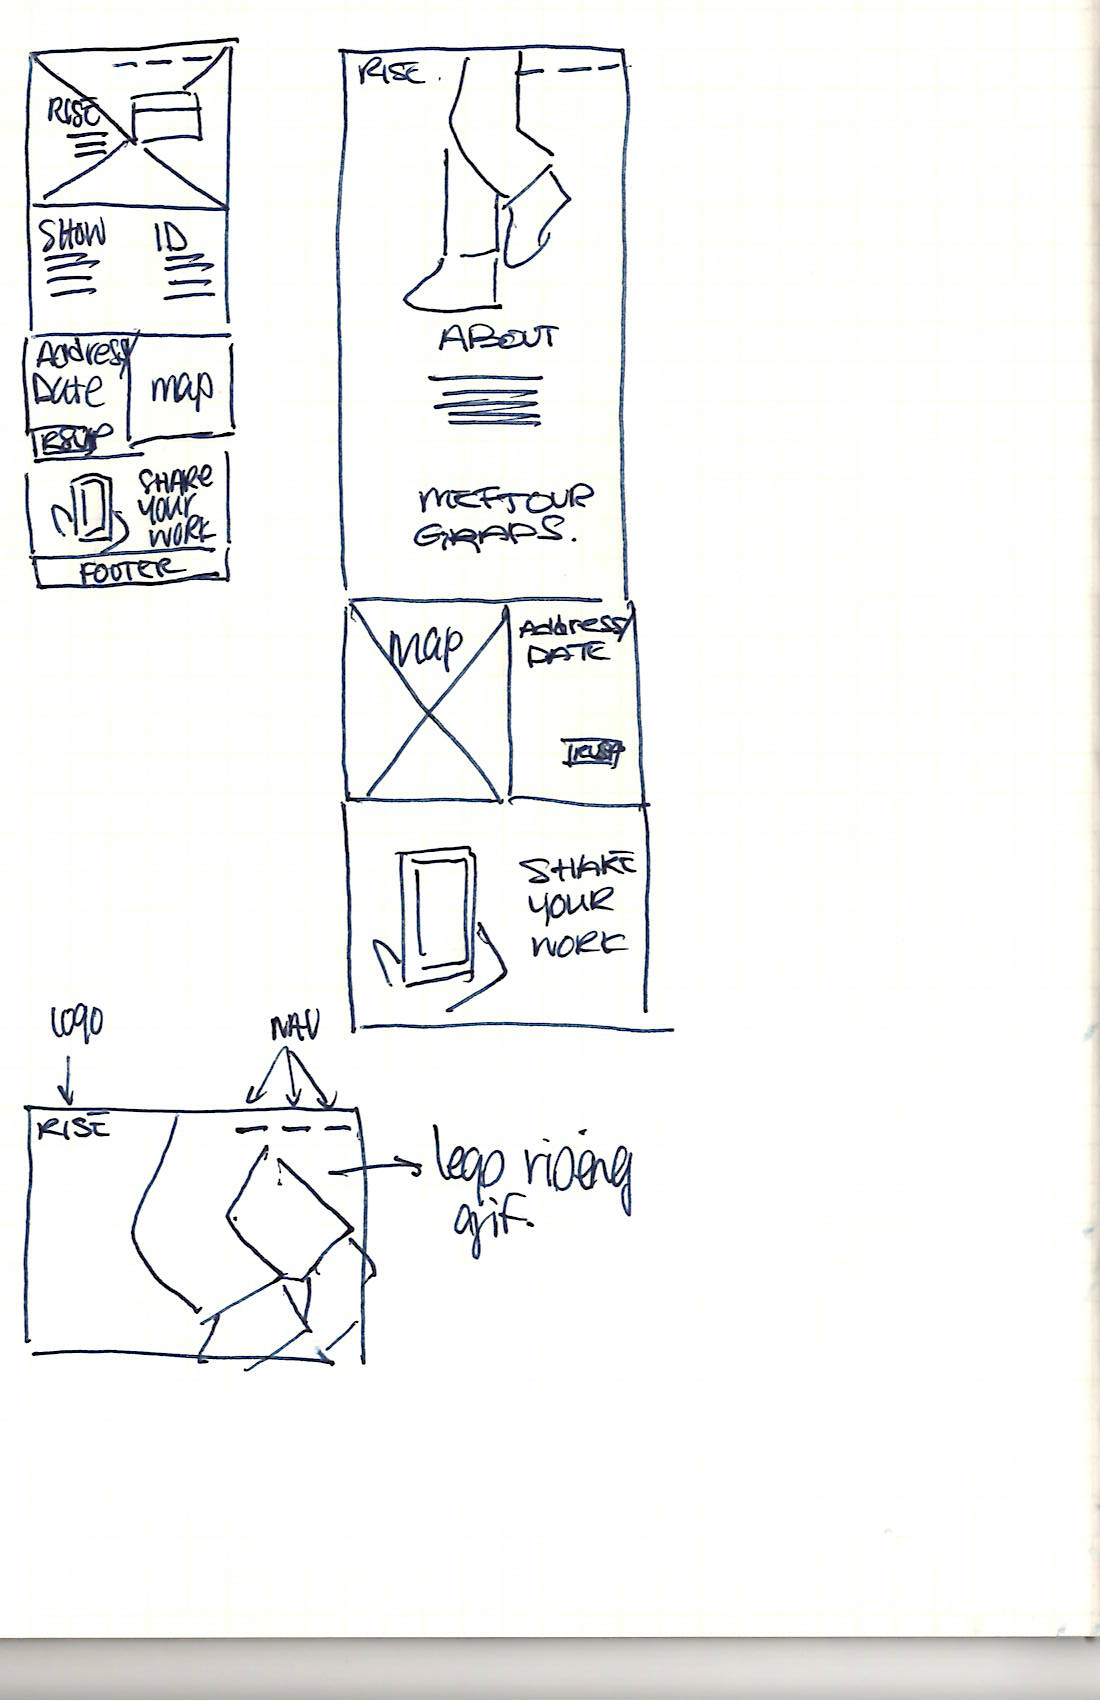 RISE
SHOW
ID
Address/
Date
map
RSVP
SHARE
YOUR
WORK
FOOTER
RISE.
ABOUT
MEET OUR
GRADS.
map
Address/
DATE
SHARE
YOUR
WORK
logo
NAV
RISE
gif.